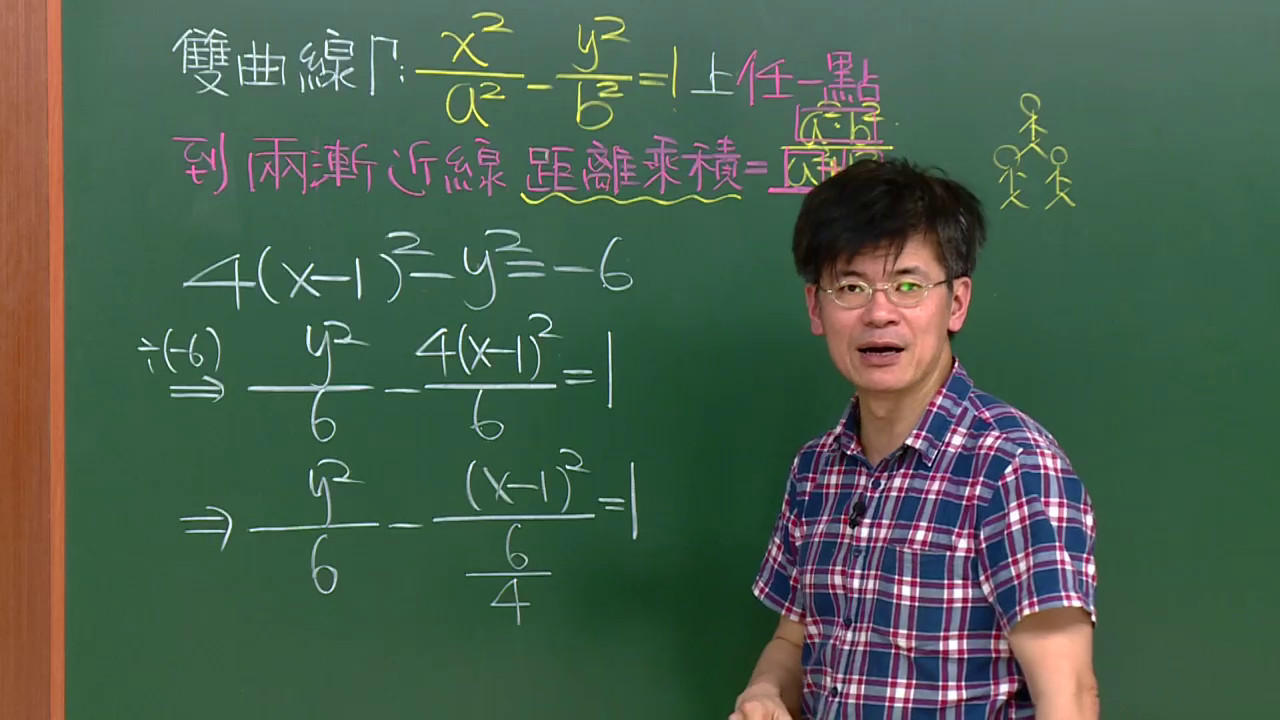 雙曲線Γ: x²/a² - y²/b² = 1 上任一點
到兩漸近線距離乘積 = a²·b²/a²+
4(x-1)² - y² = -6
÷(-6) ⇒ y²/6 - 4(x-1)²/6 = 1
⇒ y²/6 - (x-1)²/(6/4) = 1